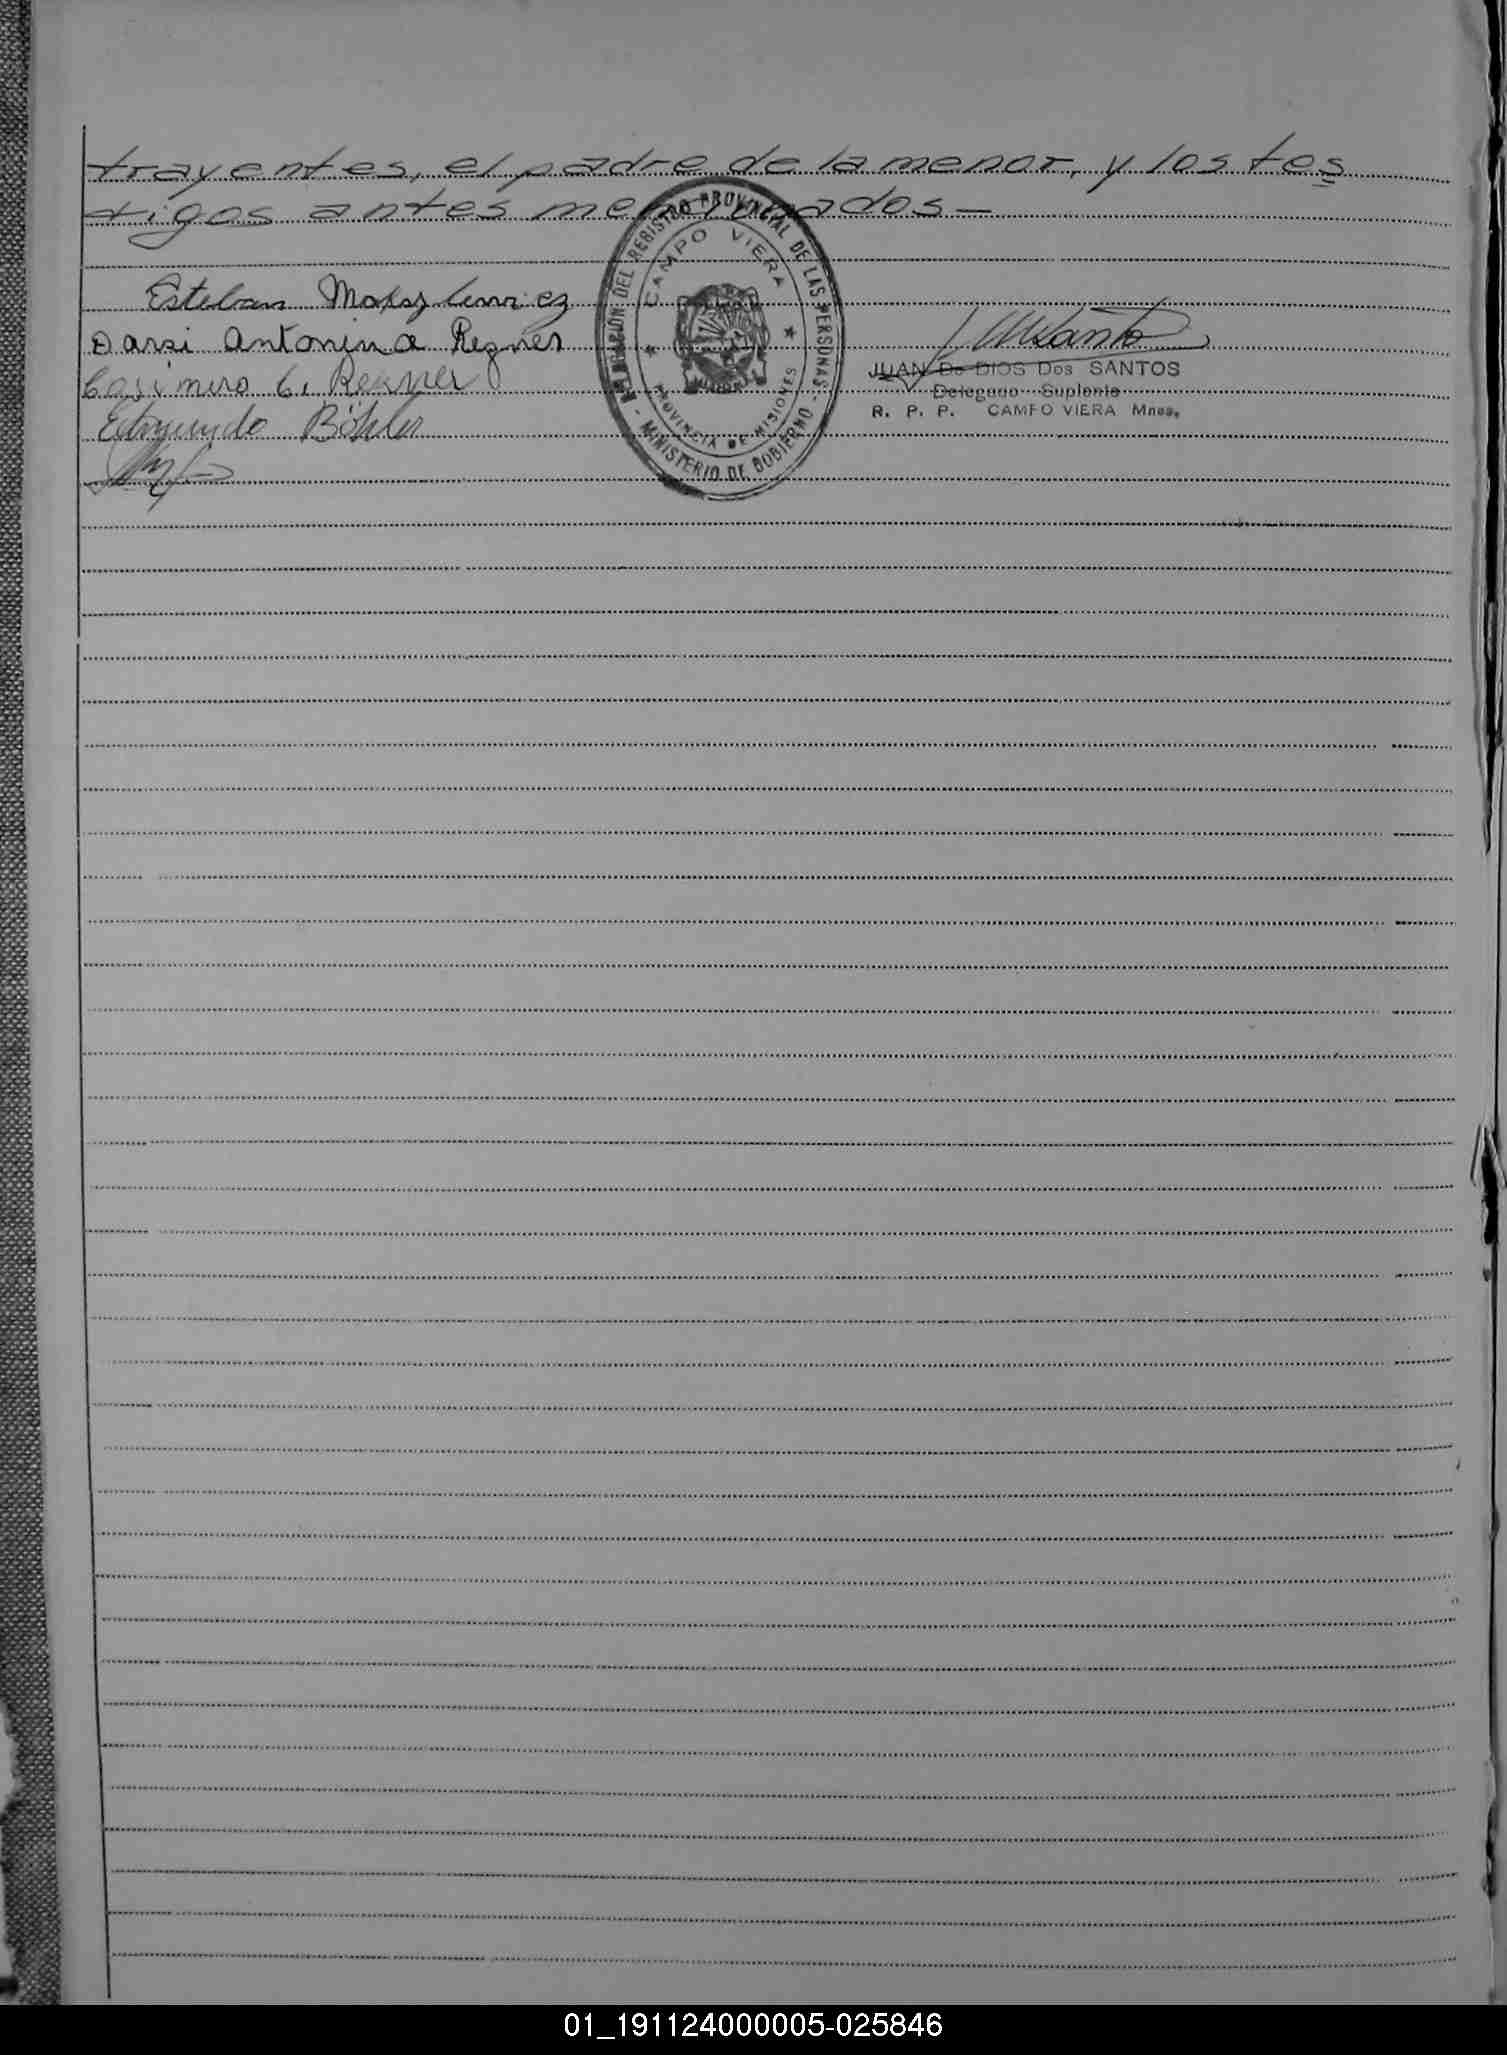 trayentes, el padre de la menor, y los tes
tigos antes mencionados—
Esteban
Darsi Antonina Regner
Casimiro C. Regner
Edmundo Böhler
DEL REGISTRO PROVINCIAL DE LAS PERSONAS - MINISTERIO DE GOBIERNO -
CAMPO VIERA
PROVINCIA DE MISIONES
JUAN De DIOS Dos SANTOS
Delegado Suplente
R. P. P. CAMPO VIERA Mnes.
01_191124000005-025846